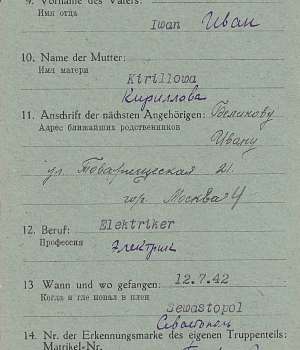 9. Vorname des Vaters:
Имя отца
Iwan Иван
10. Name der Mutter:
Имя матери
Kirillowa
Кириллова
11. Anschrift der nächsten Angehörigen: Беликову
Адрес ближайших родственников
Ивану
ул. Товарищеская 21.
гор. Москва 4
12. Beruf: Elektriker
Профессия
Электрик
13 Wann und wo gefangen: 12.7.42
Когда и где попал в плен
Sewastopol
Севастополь
14. Nr. der Erkennungsmarke des eigenen Truppenteils:
Matrikel-Nr.